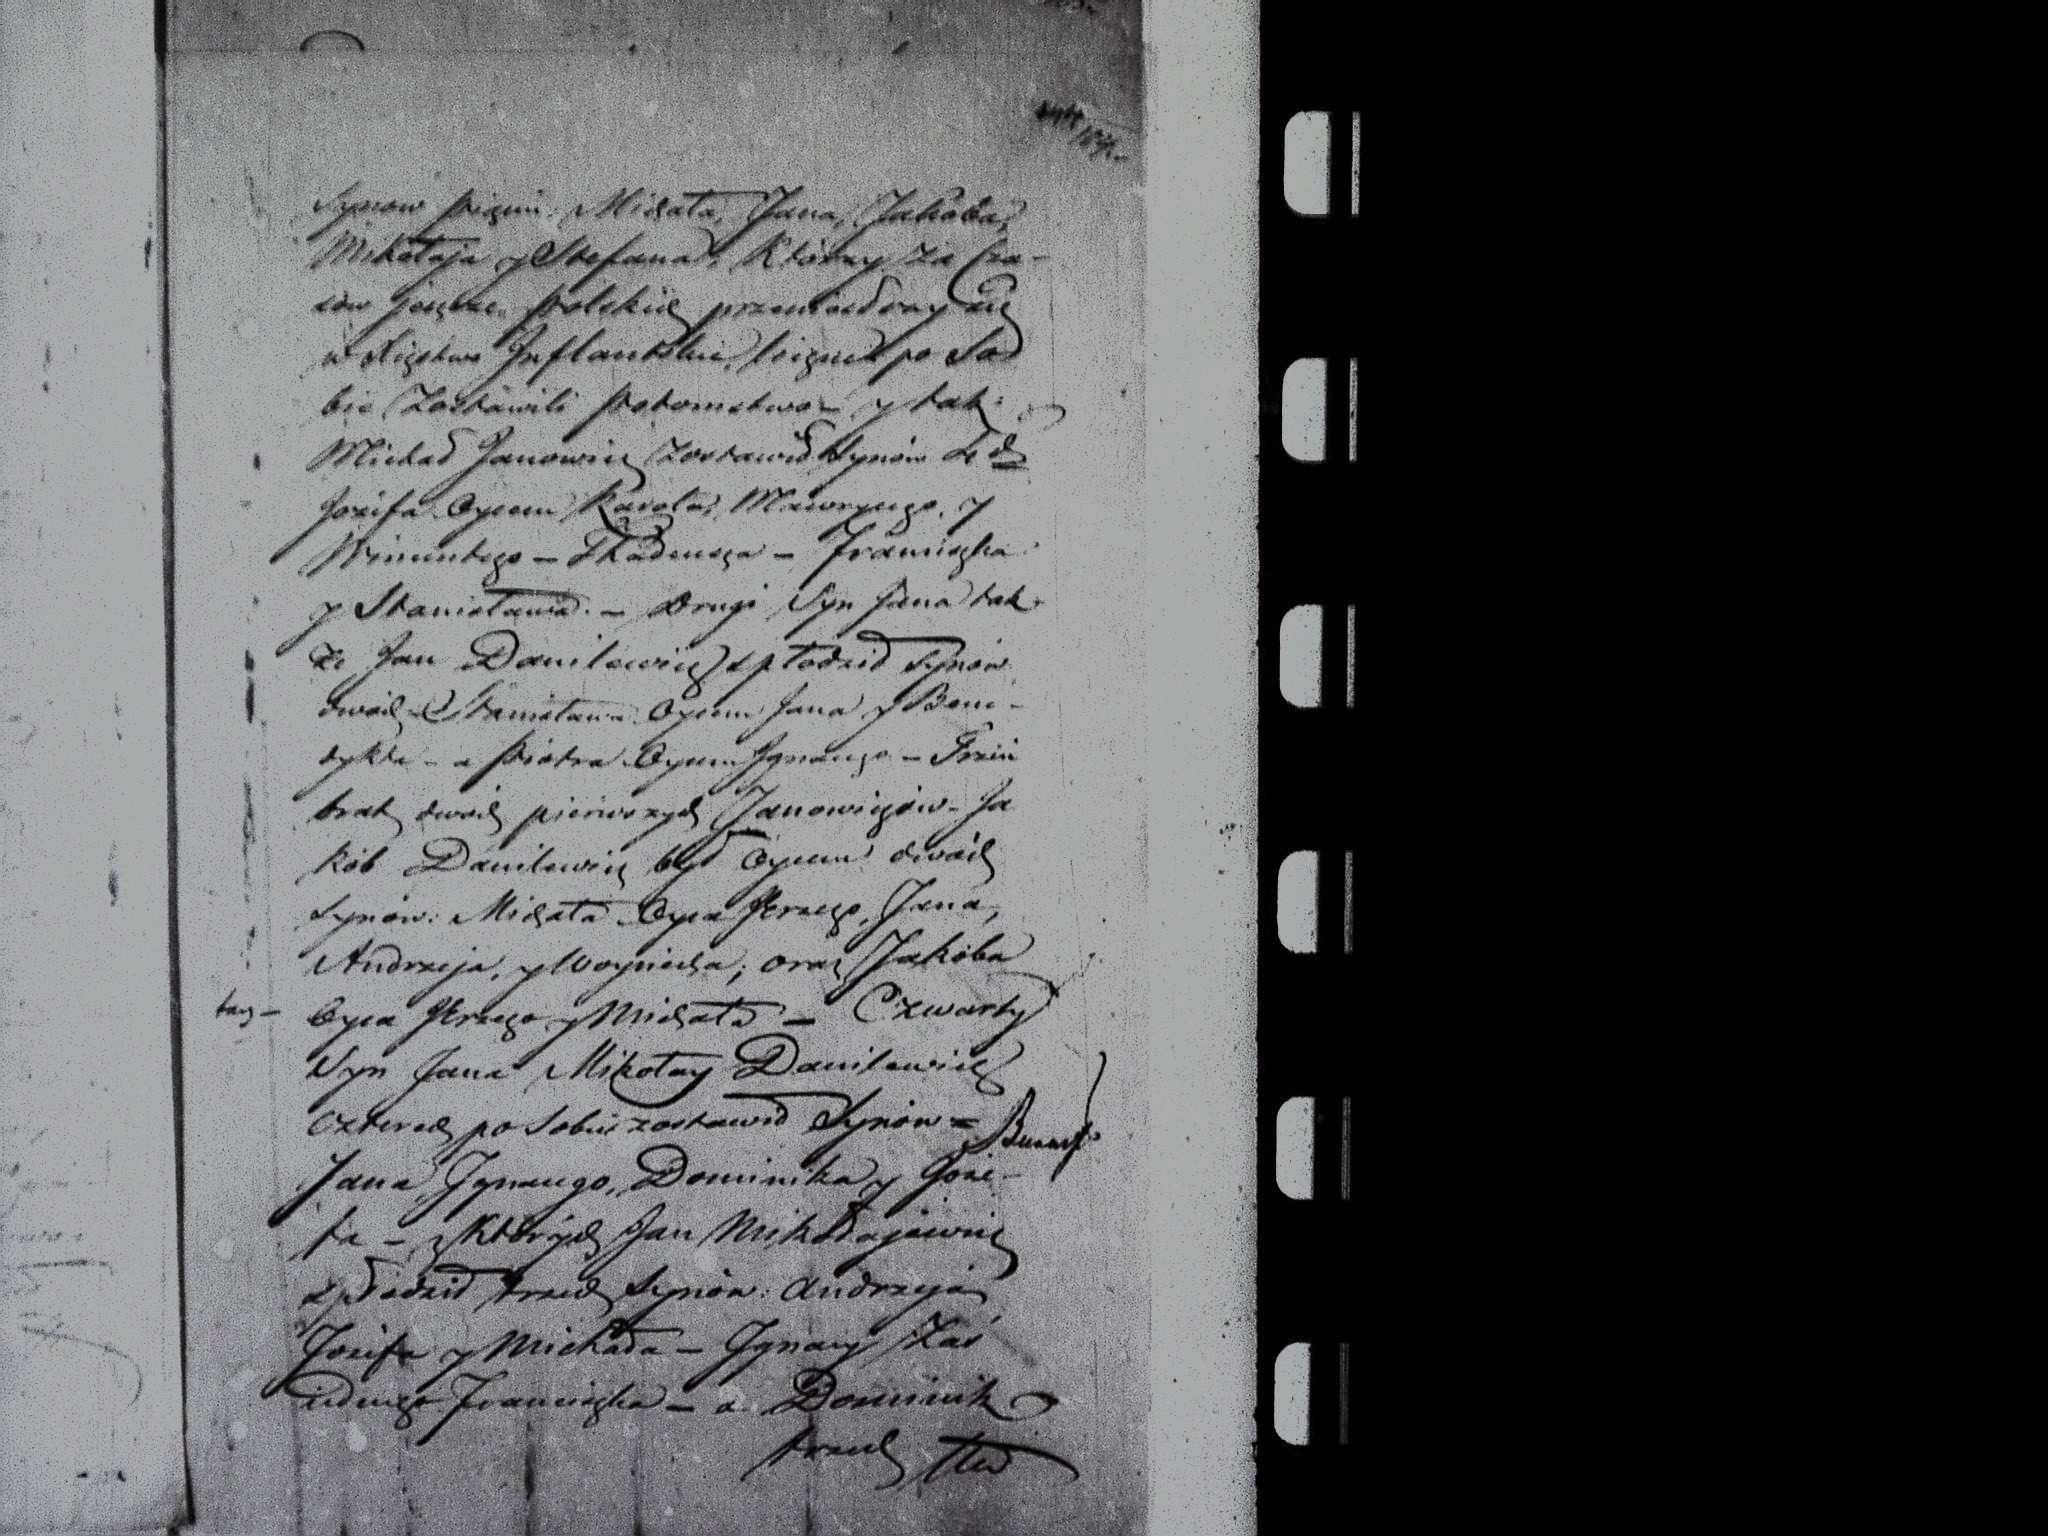 Synow pięciu: Michała, Jana, Jakoba,
Mikołaja y Stefana, Którzy za Cza-
sów jeszcze Polskich przeniosłszy się
w Xięstwo Inflantskie, liczne po So
bie Zostawili Potomstwo – y tak:
Michał Janowicz Zostawił Synów
Jozefa Oycem Karola, Mawrycego, y
Wincentego – Thadeusza – Franciszka
y Stanisława. – Drugi Syn Jana tak
że Jan Danilewicz spłodził Synów
dwóch – Stanisława Oycem Jana y Bene-
dykta – a Piotra Oycem Ignacego – Trzeci
brat dwóch pierwszych Janowiczów – Ja
kób Danilewicz był Oycem dwóch
Synów: Michała Oyca Jerzego, Jana,
Andrzeja, y Woyciecha; oraz Jakóba
Oyca Jerzego y Michała – Czwarty
Syn Jana Mikołay Danilewicz
Czterech po Sobie zostawił Synów =
Jana, Ignacego, Dominika y Joze-
fa – z Których Jan Mikołajewicz
spłodził trzech Synów: Andrzeja,
Jozefa y Michała – Ignacy Zaś
iednego Franciszka – a Dominik
trzech